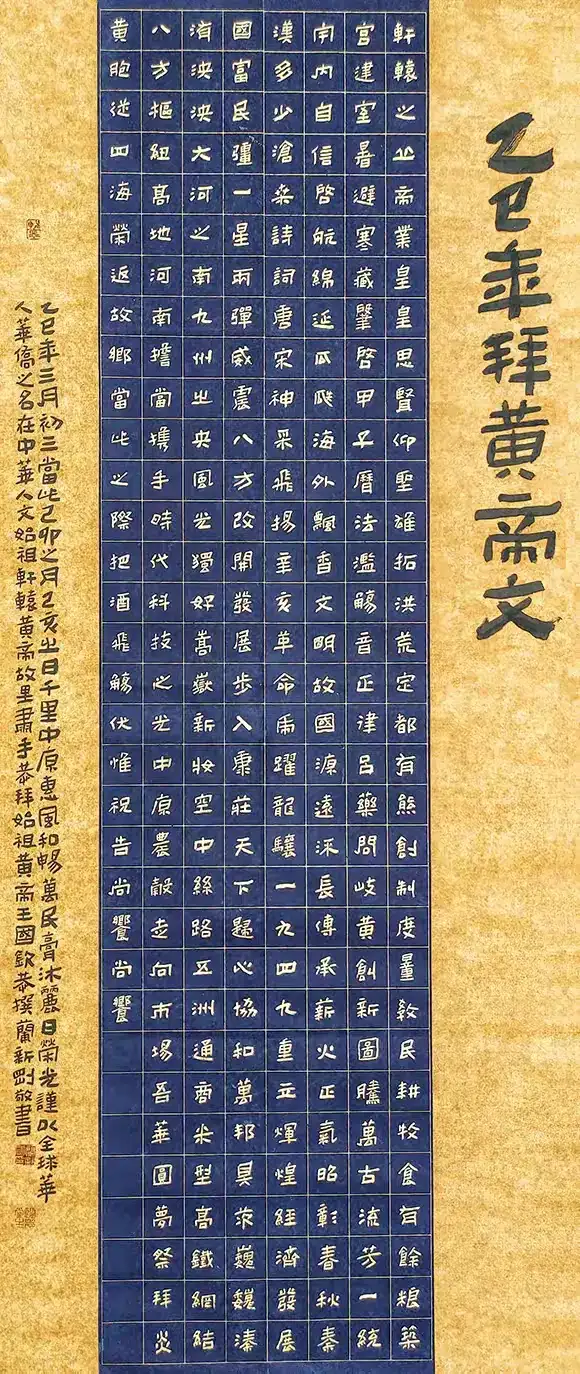 乙巳年拜黃帝文
軒轅之丘帝業皇皇思賢仰聖雄拓洪荒定都有熊創制度量教民耕牧食有餘粮築
宮建室暑避寒藏肇啓甲子曆法濫觴音正律呂藥問岐黃創新圖騰萬古流芳一統
宇内自信啓航綿延瓜瓞海外飄香文明故國源遠流長傳承薪火正氣昭彰春秋秦
漢多少滄桑詩詞唐宋神采飛揚辛亥革命虎躍龍驤一九四九重立煇煌經濟發展
國富民彊一星兩彈威震八方改開發展步入康莊天下歸心協和萬邦具茨巍巍溱
洧泱泱大河之南九州之央風光獨好嵩嶽新妝空中絲路五洲通商米型高鐵網結
八方樞紐高地河南擔當攜手時代科技之光中原農穀走向市場吾華圓夢祭拜炎
黃胞從四海榮返故鄉當此之際把酒飛觴伏惟祝告尚饗尚饗
乙巳年三月初三當此己卯之月乙亥之日千里中原惠風和暢萬民膏沐麗日榮光謹以全球華
人華僑之名在中華人文始祖軒轅黃帝故里肅手恭拜始祖黃帝王國欽恭撰蘭新剛敬書